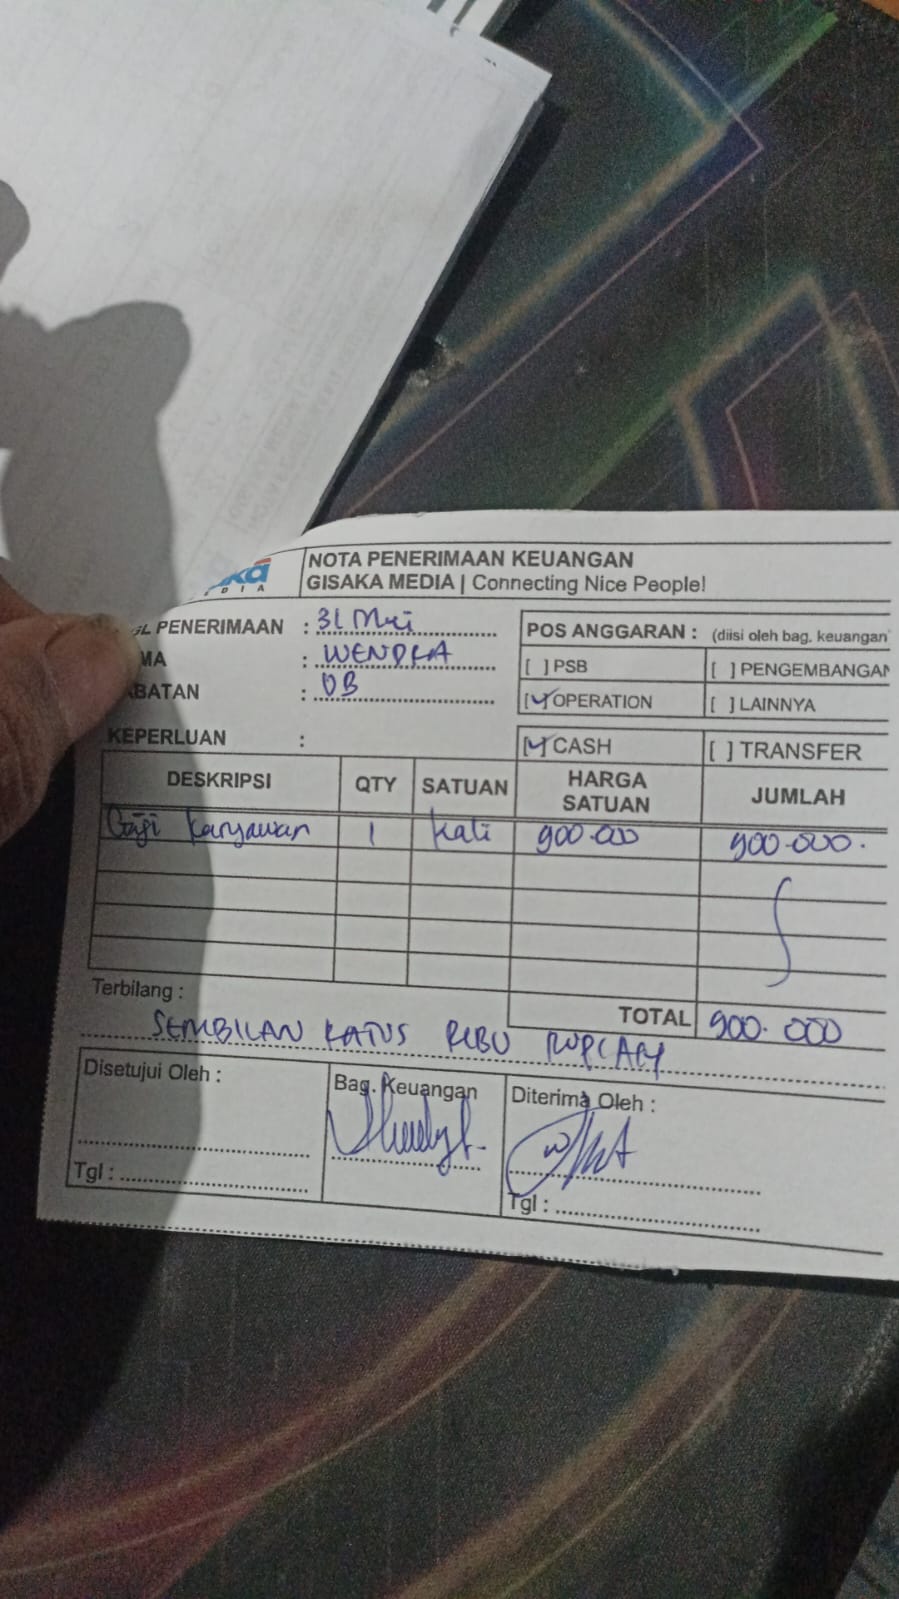 NOTA PENERIMAAN KEUANGAN
GISAKA MEDIA | Connecting Nice People!
PENERIMAAN : 31 Mei
MA : WENDRA
BATAN : OB
KEPERLUAN :
POS ANGGARAN : (diisi oleh bag. keuangan
[ ] PSB [ ] PENGEMBANGAN
[✓] OPERATION [ ] LAINNYA
[✓] CASH [ ] TRANSFER
DESKRIPSI QTY SATUAN HARGA SATUAN JUMLAH
Gaji Karyawan 1 kali 900.000 900.000.
Terbilang : TOTAL 900.000
SEMBILAN RATUS RIBU RUPIAH
Disetujui Oleh : Bag. Keuangan Diterima Oleh :
Tgl : Tgl :